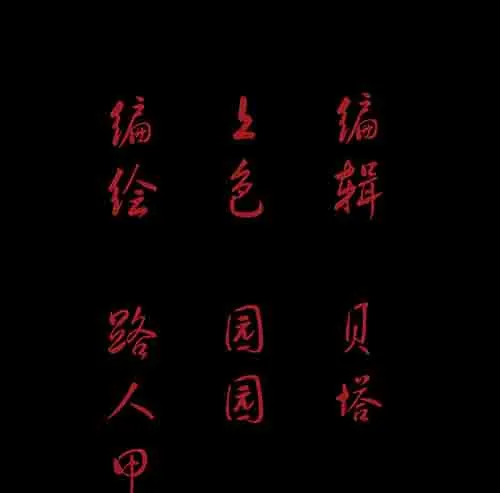 编绘 路人甲
上色 园园
编辑 贝塔